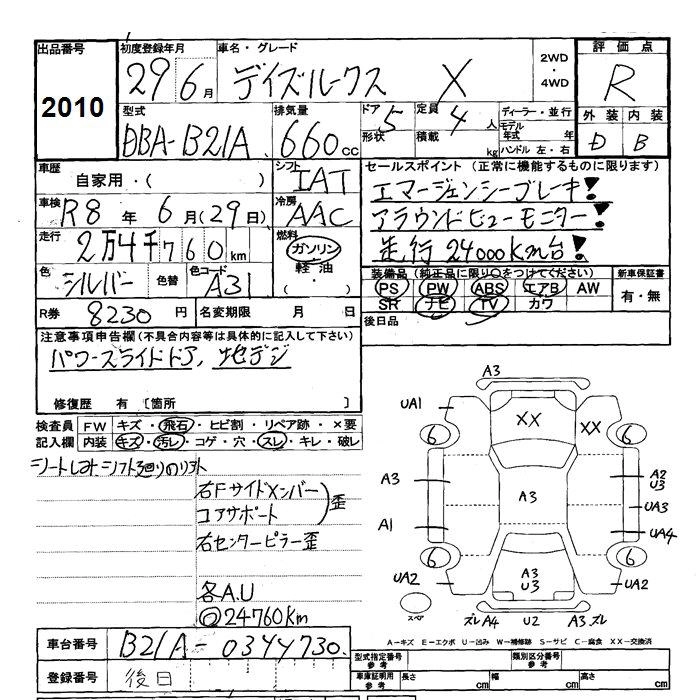 出品番号 初度登録年月 車名・グレード 評価点
2010 29年6月 デイズルークス X 2WD・4WD R
型式 排気量 ドア 定員 ディーラー・並行 外装 内装
DBA-B21A 660cc 5 4人 D B
形状 積載 kg モデル年式 年 ハンドル 左・右
車歴 自家用・( ) シフト IAT
セールスポイント (正常に機能するものに限ります)
車検 R8年6月(29日) 冷房 AAC
エマージェンシーブレーキ!
アラウンドビューモニター!
走行 2万4千760km 燃料 ガソリン
走行24000Km台!
軽油
(・)
色 シルバー 色替 色コード A31
装備品 (純正品に限り○をつけてください) 新車保証書
PS PW ABS エアB AW 有・無
SR ナビ TV カワ
R券 8230円 名変期限 月 日
後日品
注意事項申告欄(不具合内容等は具体的に記入して下さい)
パワースライドドア, 地デジ
修復歴 有 [箇所 ]
検査員 FW キズ・飛石・ヒビ割・リペア跡・×要
記入欄 内装 キズ・汚レ・コゲ・穴・スレ・キレ・破レ
右Fサイドメンバー
コアサポート
歪
右センターピラー歪
各A.U
24760Km
A3
UA1 XX XX
6 6
A3 A3 A2
U3
UA3
A1 UA4
6 6
UA2 A3
U3 UA2
スペア ズレ A4 U2 A3 ズレ
A－キズ E－エクボ U－凹み W－補修跡 S－サビ C－腐食 XX－交換済
車台番号 B21A-0344730
型式指定番号 参考 類別区分番号 参考
登録番号 後日
車庫証明用 参考 長さ cm 幅 cm 高さ cm